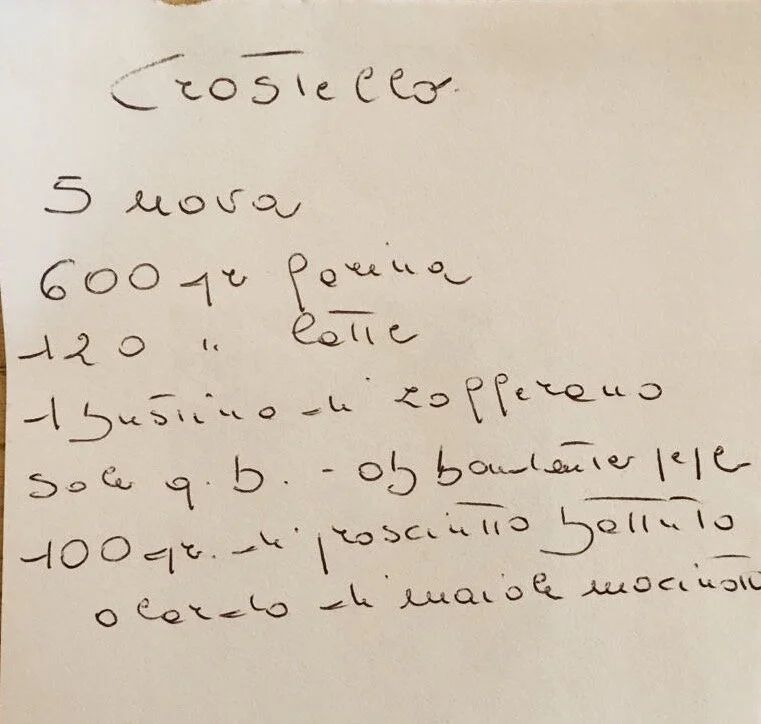 Crostello
5 uova
600 gr farina
120 " latte
1 bustina di zafferano
sale q.b. - abbondante pepe
100 gr. di prosciutto battuto
o lardo di maiale macinato